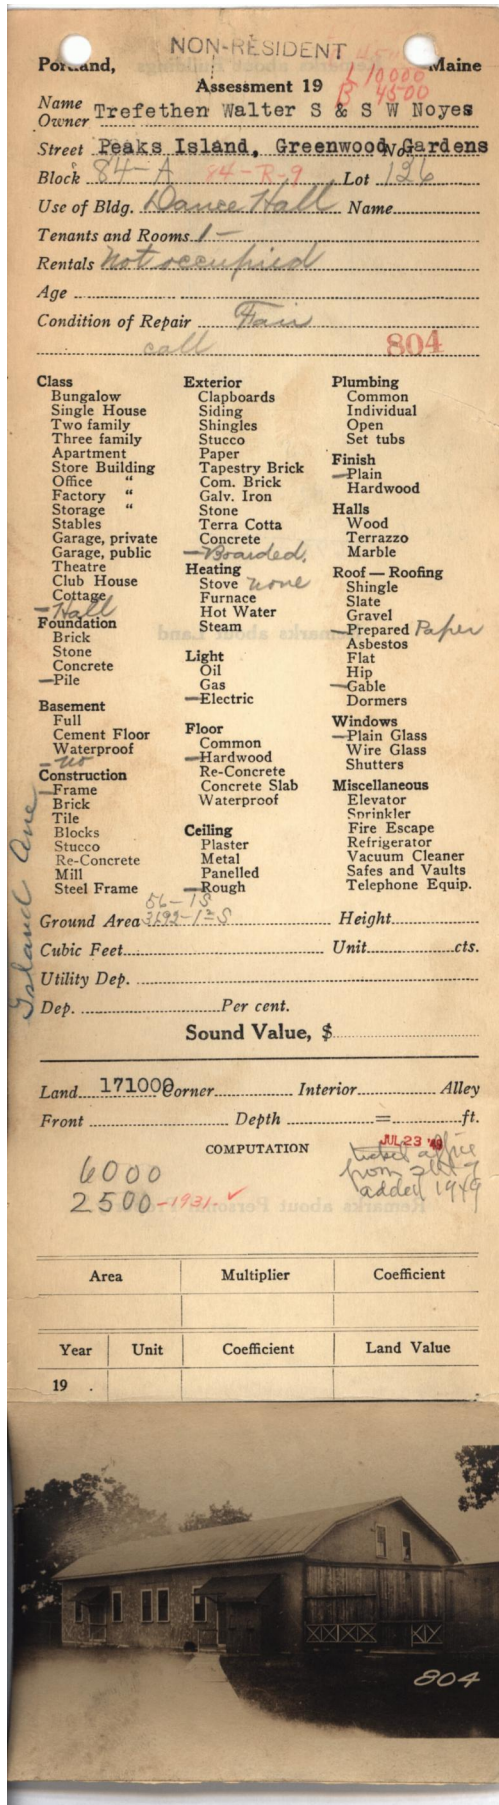 NON-RESIDENT
Portland, Maine
Assessment 19
L 10000
B 4500
Name
Owner Trefethen Walter S & S W Noyes
Street Peaks Island, Greenwood Gardens No.
Block 84-A 84-R-9 Lot 126
Use of Bldg. Dance Hall Name
Tenants and Rooms 1-
Rentals Not occupied
Age
Condition of Repair Fair
call 804
Class
Bungalow
Single House
Two family
Three family
Apartment
Store Building
Office "
Factory "
Storage "
Stables
Garage, private
Garage, public
Theatre
Club House
Cottage
Hall
Foundation
Brick
Stone
Concrete
Pile
Basement
Full
Cement Floor
Waterproof
no
Construction
Frame
Brick
Tile
Blocks
Stucco
Re-Concrete
Mill
Steel Frame
Exterior
Clapboards
Siding
Shingles
Stucco
Paper
Tapestry Brick
Com. Brick
Galv. Iron
Stone
Terra Cotta
Concrete
Boarded.
Heating
Stove none
Furnace
Hot Water
Steam
Light
Oil
Gas
Electric
Floor
Common
Hardwood
Re-Concrete
Concrete Slab
Waterproof
Ceiling
Plaster
Metal
Panelled
Rough
Plumbing
Common
Individual
Open
Set tubs
Finish
Plain
Hardwood
Halls
Wood
Terrazzo
Marble
Roof — Roofing
Shingle
Slate
Gravel
Prepared Paper
Asbestos
Flat
Hip
Gable
Dormers
Windows
Plain Glass
Wire Glass
Shutters
Miscellaneous
Elevator
Sprinkler
Fire Escape
Refrigerator
Vacuum Cleaner
Safes and Vaults
Telephone Equip.
Island Ave
56-1S
Ground Area 3692-1 S Height
Cubic Feet Unit cts.
Utility Dep.
Dep. Per cent.
Sound Value, $
Land 171000 Corner Interior Alley
Front Depth = ft.
COMPUTATION
JUL 23
ticket office
from
added 1949
6000
2500-1931-✓
Area Multiplier Coefficient
Year Unit Coefficient Land Value
19 .
804